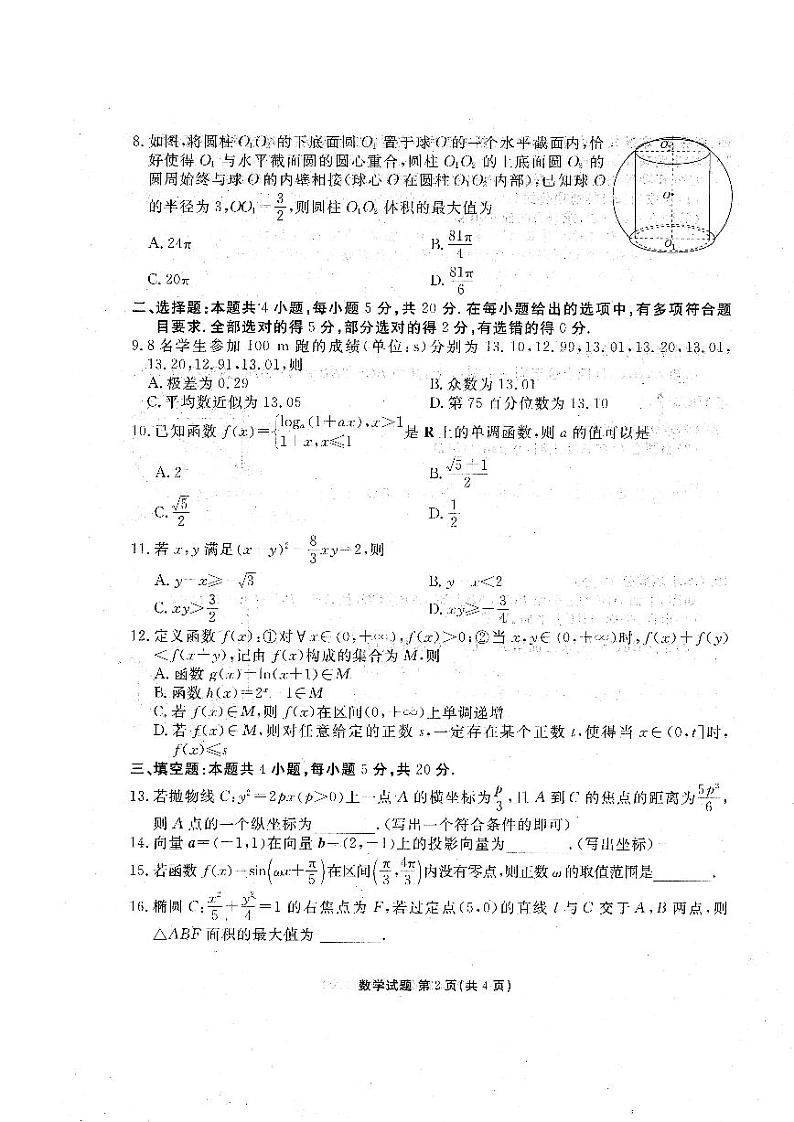 8. 如图,将圆柱 O₁O₂ 的下底面圆 O₁ 置于球 O 的一个水平截面内,恰
好使得 O₁ 与水平截面圆的圆心重合,圆柱 O₁O₂ 的上底面圆 O₂ 的
圆周始终与球 O 的内壁相接(球心 O 在圆柱 O₁O₂ 内部),已知球 O
的半径为 3,OO₁=3/2,则圆柱 O₁O₂ 体积的最大值为
A. 24π B. 81π/4
C. 20π D. 81π/6
O₂
O
O₁
二、选择题:本题共 4 小题,每小题 5 分,共 20 分.在每小题给出的选项中,有多项符合题
目要求.全部选对的得 5 分,部分选对的得 2 分,有选错的得 0 分.
9. 8 名学生参加 100 m 跑的成绩(单位:s)分别为 13.10,12.99,13.01,13.20,13.01,
13.20,12.91,13.01,则
A. 极差为 0.29 B. 众数为 13.01
C. 平均数近似为 13.05 D. 第 75 百分位数为 13.10
10. 已知函数 f(x)={logₐ(1+ax),x>1
1+x,x≤1 是 R 上的单调函数,则 a 的值可以是
A. 2 B. (√5+1)/2
C. √5/2 D. 1/2
11. 若 x,y 满足(x-y)²-8/3xy=2,则
A. y-x≥-√3 B. y-x<2
C. xy>3/2 D. xy≥-3/4
12. 定义函数 f(x):①对∀x∈(0,+∞),f(x)>0;②当 x,y∈(0,+∞)时,f(x)+f(y)
<f(x+y),记由 f(x)构成的集合为 M,则
A. 函数 g(x)=ln(x+1)∈M
B. 函数 h(x)=2ˣ-1∈M
C. 若 f(x)∈M,则 f(x)在区间(0,+∞)上单调递增
D. 若 f(x)∈M,则对任意给定的正数 s,一定存在某个正数 t,使得当 x∈(0,t]时,
f(x)≤s
三、填空题:本题共 4 小题,每小题 5 分,共 20 分.
13. 若抛物线 C:y²=2px(p>0)上一点 A 的横坐标为p/3,且 A 到 C 的焦点的距离为5p³/6,
则 A 点的一个纵坐标为______.(写出一个符合条件的即可)
14. 向量 a=(-1,1)在向量 b=(2,-1)上的投影向量为______.(写出坐标)
15. 若函数 f(x)=sin(ωx+π/5)在区间(π/3,4π/3)内没有零点,则正数 ω 的取值范围是______.
16. 椭圆 C:x²/5+y²/4=1 的右焦点为 F,若过定点(5,0)的直线 l 与 C 交于 A,B 两点,则
△ABF 面积的最大值为______.
数学试题 第 2 页(共 4 页)